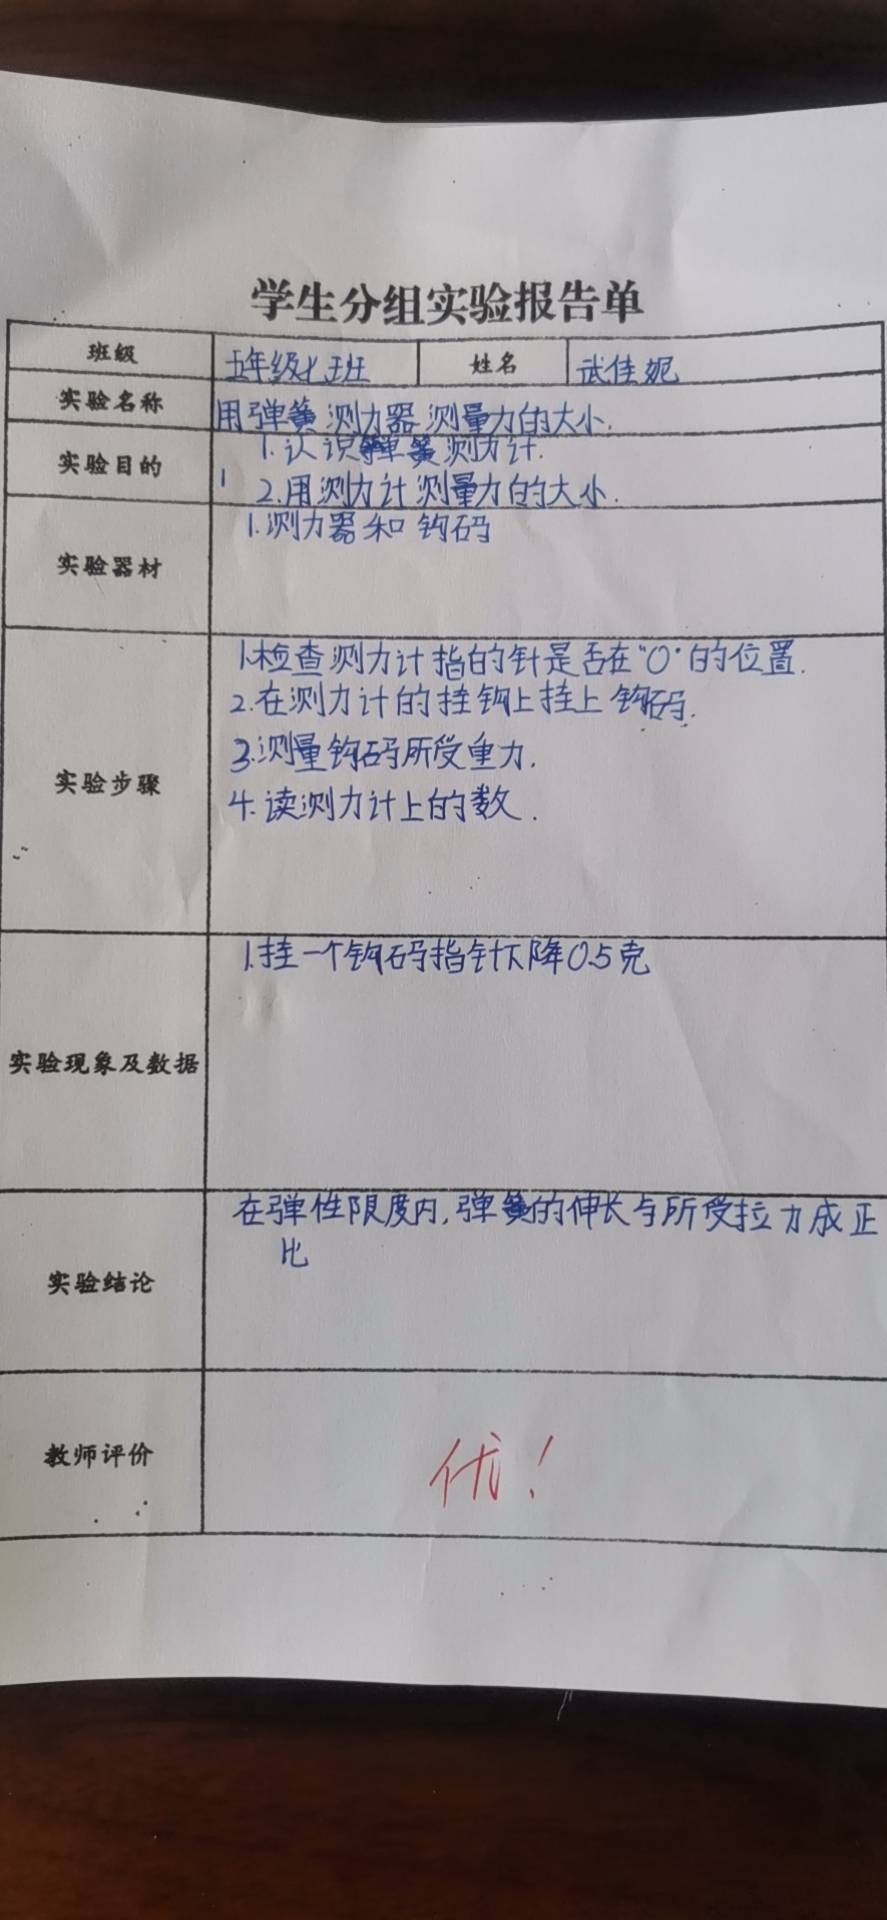 学生分组实验报告单
班级 五年级七班 姓名 武佳妮
实验名称 用弹簧测力器测量力的大小.
实验目的 1.认识弹簧测力计.
2.用测力计测量力的大小.
实验器材 1.测力器和钩码
实验步骤 1.检查测力计指的针是否在"0"的位置.
2.在测力计的挂钩上挂上钩码.
3.测量钩码所受重力.
4.读测力计上的数.
实验现象及数据 1.挂一个钩码指针下降0.5克
实验结论 在弹性限度内,弹簧的伸长与所受拉力成正
比
教师评价 优!